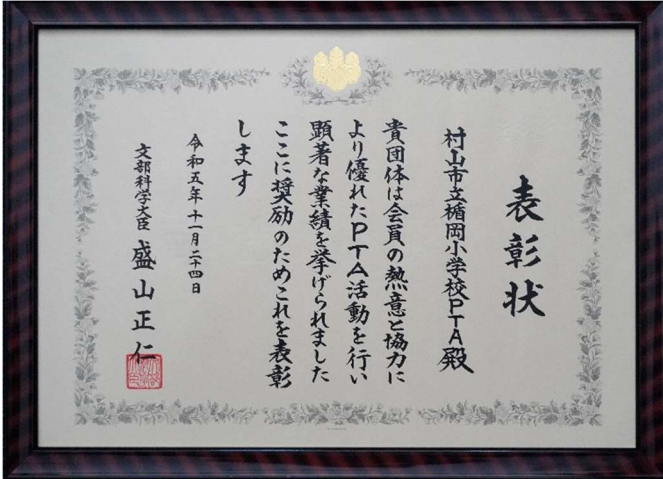 表彰状
村山市立楯岡小学校PTA殿
貴団体は会員の熱意と協力に
より優れたPTA活動を行い
顕著な業績を挙げられました
ここに奨励のためこれを表彰
します
令和五年十一月二十四日
文部科学大臣 盛山正仁